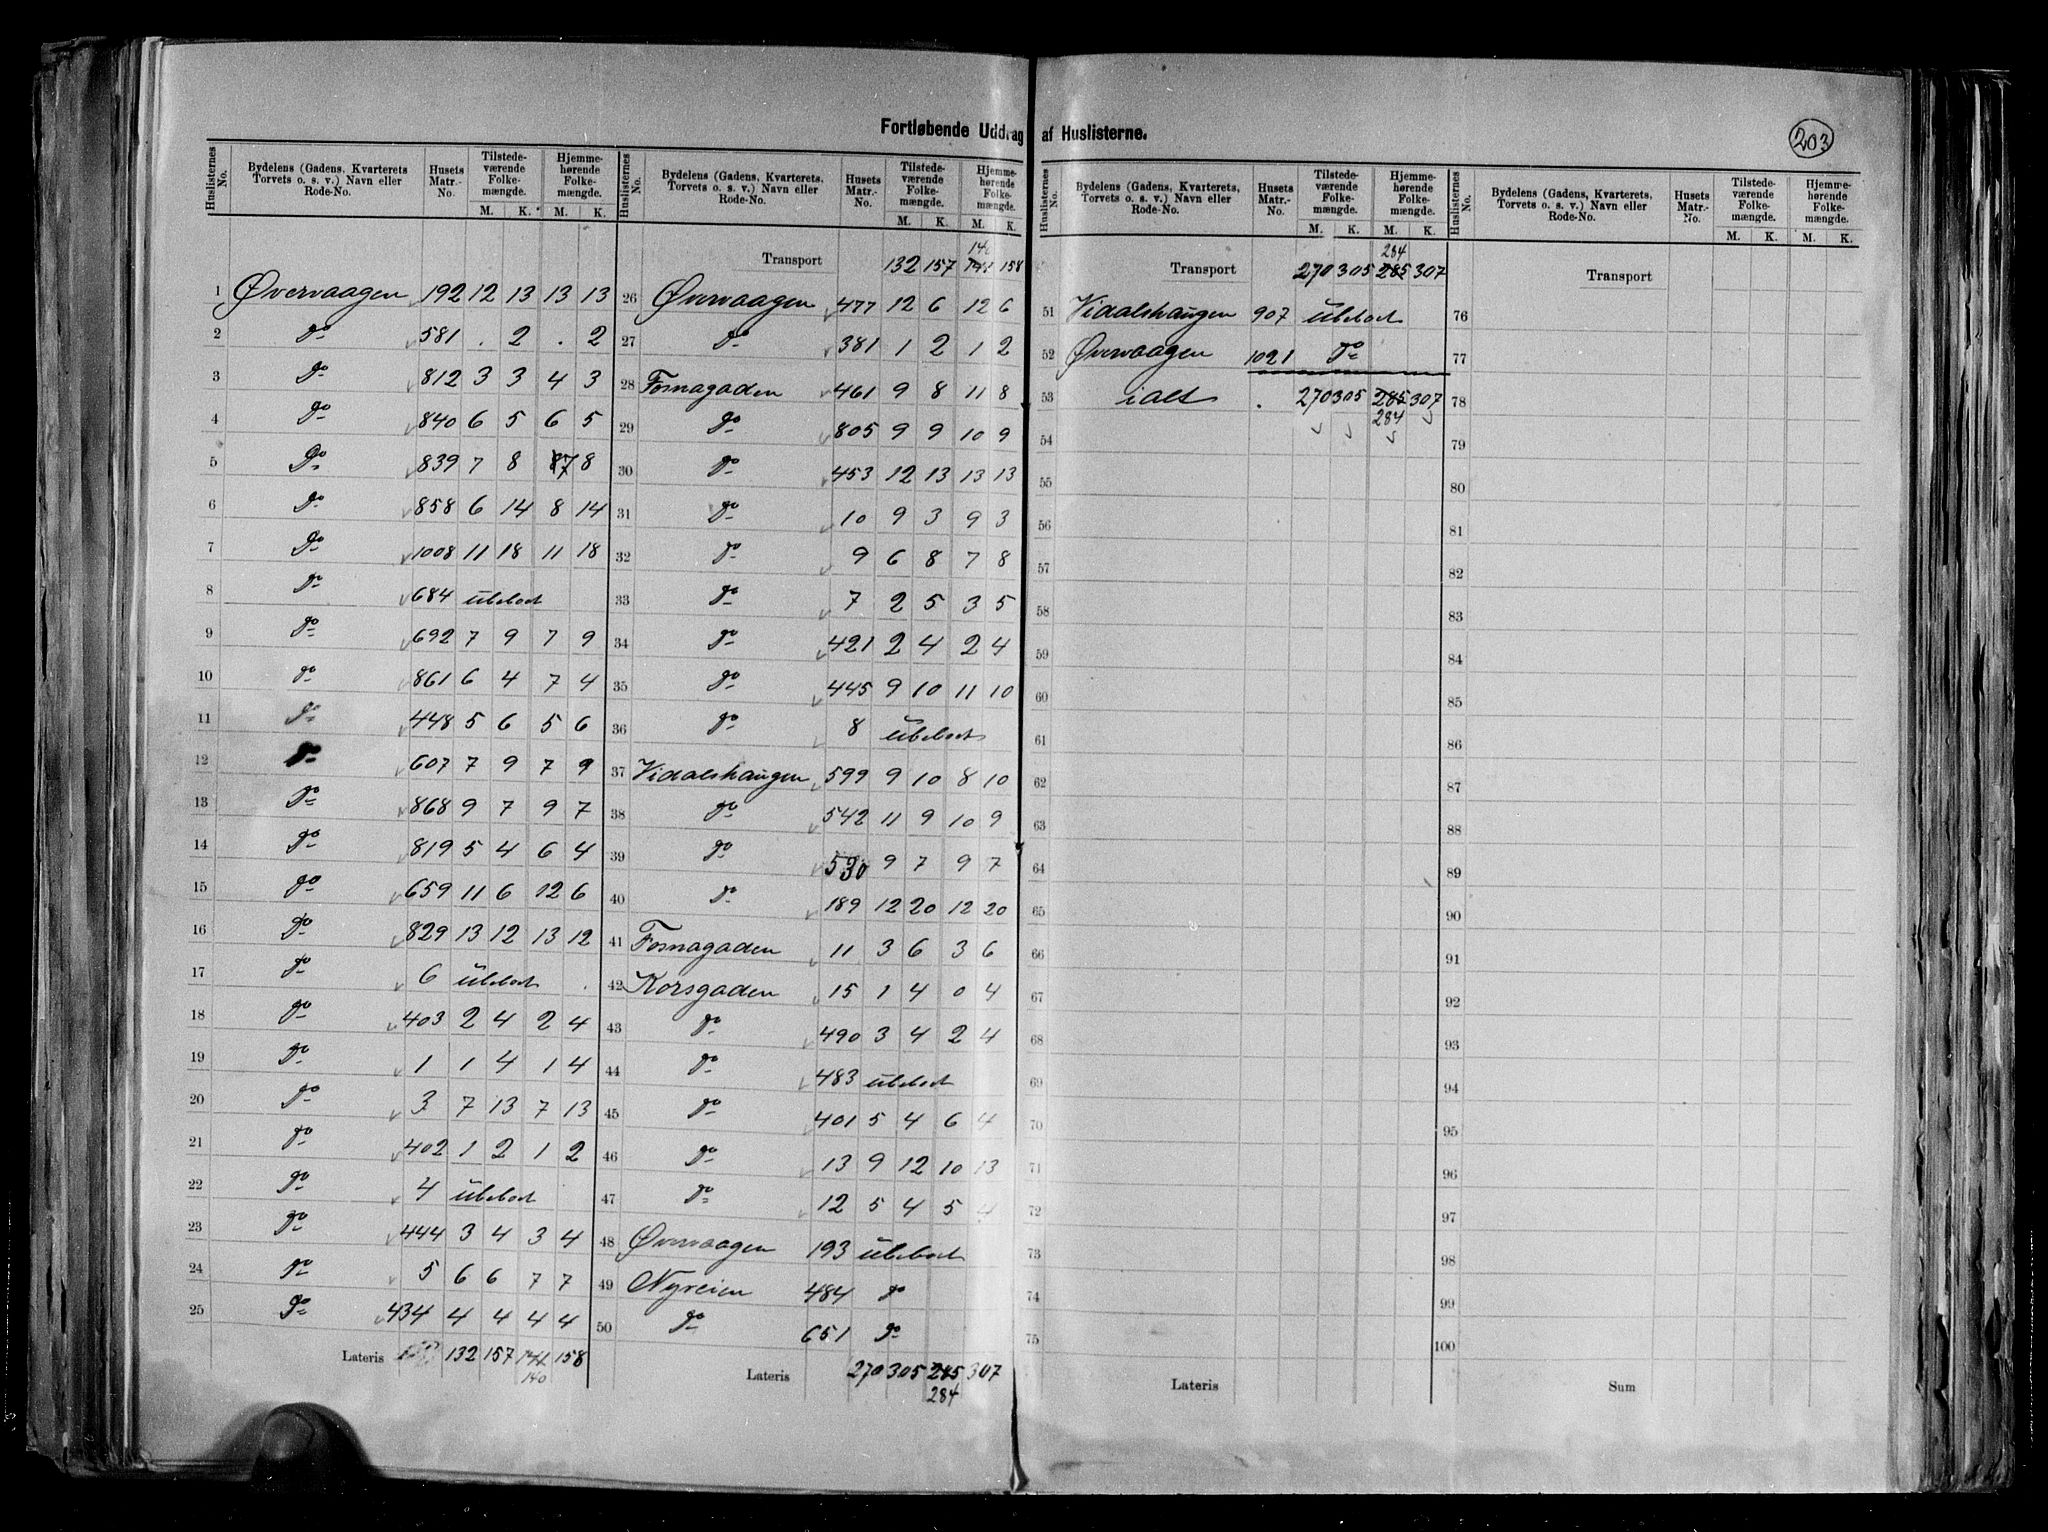 Fortløbende Uddrag af Huslisterne.
203
Huslisternes No. | Bydelens (Gadens, Kvarterets Torvets o. s. v.) Navn eller Rode-No. | Husets Matr.-No. | Tilstede-værende Folke-mængde. M. K. | Hjemme-hørende Folke-mængde. M. K.
1 Øvervaagen 192 12 13 13 13
2 Do 581 . 2 . 2
3 Do 812 3 3 4 3
4 Do 840 6 5 6 5
5 Do 839 7 8 7 8
6 Do 858 6 14 8 14
7 Do 1008 11 18 11 18
8 Do 684 ubeboet
9 Do 692 7 9 7 9
10 Do 861 6 4 7 4
11 Do 448 5 6 5 6
12 Do 607 7 9 7 9
13 Do 868 9 7 9 7
14 Do 819 5 4 6 4
15 Do 659 11 6 12 6
16 Do 829 13 12 13 12
17 Do 6 ubeboet
18 Do 403 2 4 2 4
19 Do 1 1 4 1 4
20 Do 3 7 13 7 13
21 Do 402 1 2 1 2
22 Do 4 ubeboet
23 Do 444 3 4 3 4
24 Do 5 6 6 7 7
25 Do 434 4 4 4 4
Lateris 132 157 141 158
140
Huslisternes No. | Bydelens (Gadens, Kvarterets, Torvets o. s. v.) Navn eller Rode-No. | Husets Matr.-No. | Tilstede-værende Folke-mængde. M. K. | Hjemme-hørende Folke-mængde. M. K.
Transport 132 157 141 158
26 Øvervaagen 477 12 6 12 6
27 Do 381 1 2 1 2
28 Fosnagaden 461 9 8 11 8
29 Do 805 9 9 10 9
30 Do 453 12 13 13 13
31 Do 10 9 3 9 3
32 Do 9 6 8 7 8
33 Do 7 2 5 3 5
34 Do 421 2 4 2 4
35 Do 445 9 10 11 10
36 Do 8 ubeboet
37 Vidalshaugen 599 9 10 8 10
38 Do 542 11 9 10 9
39 Do 530 9 7 9 7
40 Do 189 12 20 12 20
41 Fosnagaden 11 3 6 3 6
42 Korsgaden 15 1 4 0 4
43 Do 490 3 4 2 4
44 Do 483 ubeboet
45 Do 401 5 4 6 4
46 Do 13 9 12 10 13
47 Do 12 5 4 5 4
48 Øvervaagen 193 ubeboet
49 Nyveien 484 Do
50 Do 651 Do
Lateris 270 305 285 307
284
Huslisternes No. | Bydelens (Gadens, Kvarterets, Torvets o. s. v.) Navn eller Rode-No. | Husets Matr.-No. | Tilstede-værende Folke-mængde. M. K. | Hjemme-hørende Folke-mængde. M. K.
284
Transport 270 305 285 307
51 Vidalshaugen 907 ubeboet
52 Øvervaagen 1021 Do
53 ialt . 270 305 285 307
284
54
55
56
57
58
59
60
61
62
63
64
65
66
67
68
69
70
71
72
73
74
75
Lateris
Huslisternes No. | Bydelens (Gadens, Kvarterets, Torvets o. s. v.) Navn eller Rode-No. | Husets Matr.-No. | Tilstede-værende Folke-mængde. M. K. | Hjemme-hørende Folke-mængde. M. K.
Transport
76
77
78
79
80
81
82
83
84
85
86
87
88
89
90
91
92
93
94
95
96
97
98
99
100
Sum